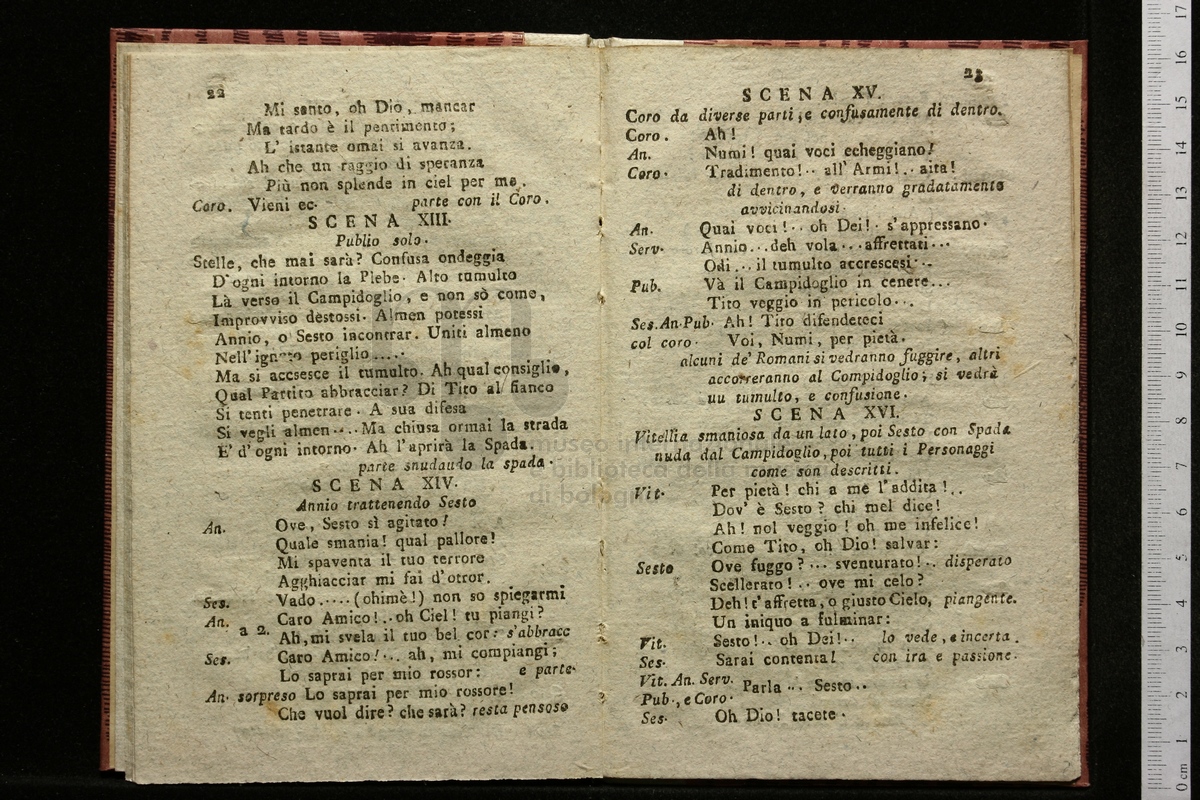 22
Mi santo, oh Dio, mancar
Ma tardo è il pentimento;
L' istante omai si avanza.
Ah che un raggio di speranza
Più non splende in ciel per me.
Coro. Vieni ec. parte con il Coro.
SCENA XIII.
Publio solo.
Stelle, che mai sarà? Confusa ondeggia
D'ogni intorno la Plebe. Alto tumulto
Là verso il Campidoglio, e non sò come,
Improvviso destossi. Almen potessi
Annio, o Sesto incontrar. Uniti almeno
Nell'ignoto periglio .....
Ma si accsesce il tumulto. Ah qual consiglio,
Qual Partito abbracciar? Di Tito al fianco
Si tenti penetrare. A sua difesa
Si vegli almen .... Ma chiusa ormai la strada
E' d'ogni intorno. Ah l'aprirà la Spada.
parte snudaudo la spada.
SCENA XIV.
Annio trattenendo Sesto
An. Ove, Sesto sì agitato!
Quale smania! qual pallore!
Mi spaventa il tuo terrore
Agghiacciar mi fai d'orror.
Ses. Vado ..... (ohimè!) non so spiegarmi
An. Caro Amico!.. oh Ciel! tu piangi?
a 2. Ah, mi svela il tuo bel cor: s'abbracc
Ses. Caro Amico!... ah, mi compiangi;
Lo saprai per mio rossor: e parte.
An. sorpreso Lo saprai per mio rossore!
Che vuol dire? che sarà? resta pensoso
23
SCENA XV.
Coro da diverse parti, e confusamente di dentro.
Coro. Ah!
An. Numi! quai voci echeggiano!
Coro. Tradimento!.. all' Armi!.. aita!
di dentro, e verranno gradatamente
avvicinandosi.
An. Quai voci!.. oh Dei!. s'appressano.
Serv. Annio... deh vola... affrettati...
Odi... il tumulto accrescesi...
Pub. Và il Campidoglio in cenere...
Tito veggio in pericolo...
Ses. An. Pub. Ah! Tito difendeteci
col coro. Voi, Numi, per pietà.
alcuni de' Romani si vedranno fuggire, altri
accorreranno al Compidoglio; si vedrà
uu tumulto, e confusione.
SCENA XVI.
Vitellia smaniosa da un lato, poi Sesto con Spada
nuda dal Campidoglio, poi tutti i Personaggi
come son descritti.
Vit. Per pietà! chi a me l'addita!..
Dov' è Sesto? chi mel dice!
Ah! nol veggio! oh me infelice!
Come Tito, oh Dio! salvar:
Sesto Ove fuggo?... sventurato!.. disperato
Scellerato!.. ove mi celo?
Deh! t'affretta, o giusto Cielo, piangente.
Un iniquo a fulminar:
Vit. Sesto!.. oh Dei!.. lo vede, e incerta.
Ses. Sarai contenta! con ira e passione.
Vit. An. Serv. Parla ... Sesto..
Pub., e Coro.
Ses. Oh Dio! tacete.
museo
biblioteca della
di bologna
17
16
15
14
13
12
11
10
9
8
7
6
5
4
3
2
1
0 cm